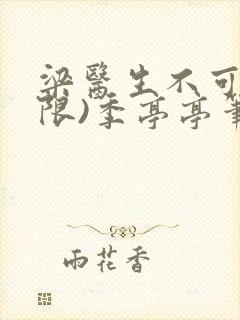 梁醫生不可
限)季亭亭筆
雨花香